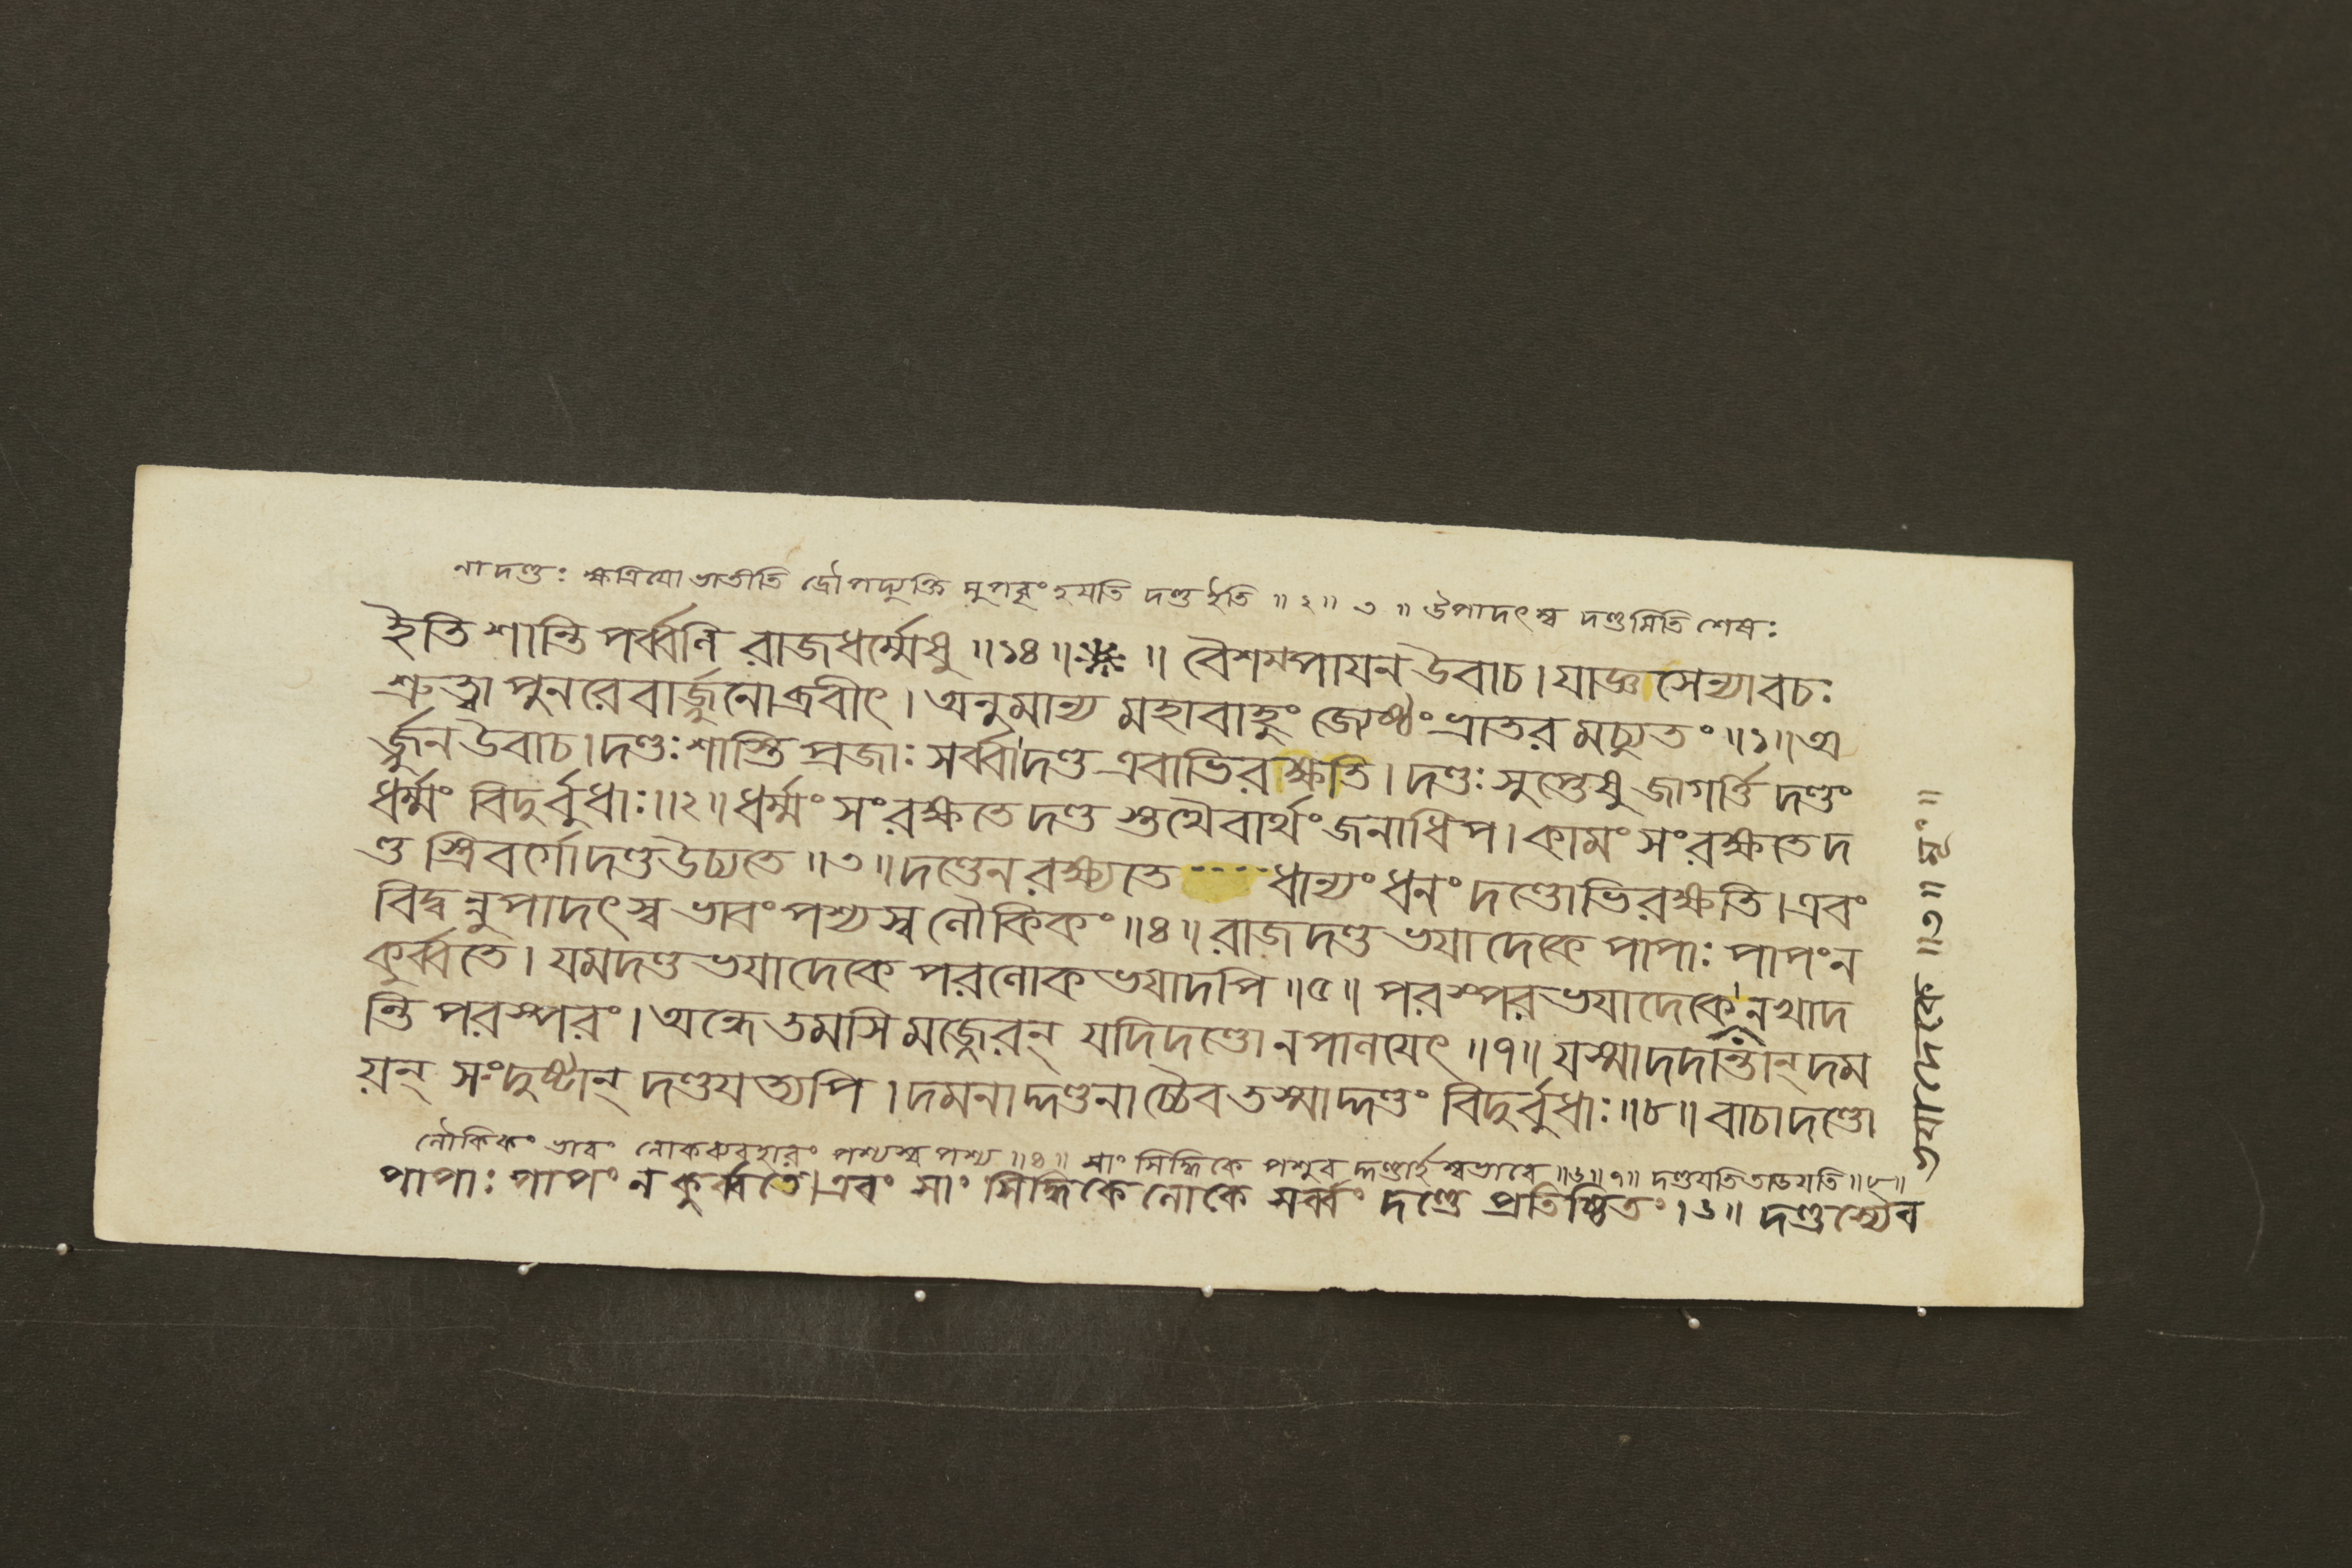 নাদণ্ডঃ ক্ষত্রিযো ভাতীতি দ্রৌপদ্যুক্তি মুপবৃংহযতি দণ্ড ইতি ॥২॥ ৩ ॥ উপাদৎস্ব দণ্ডমিতি শেষঃ
ইতি শান্তি পর্ব্বণি রাজধর্ম্মেষু ॥১৪॥ ॥ বৈশম্পাযন উবাচ। যাজ্ঞসেন্যাবচঃ
শ্রুত্বা পুনরেবার্জ্জুনোব্রবীৎ। অনুমান্য মহাবাহুং জ্যেষ্ঠং ভ্রাতরমচ্যুতং ॥১॥ অ
র্জ্জুন উবাচ। দণ্ডঃ শাস্তি প্রজাঃ সর্ব্বা দণ্ড এবাভিরক্ষতি। দণ্ডঃ সুপ্তেষু জাগর্ত্তি দণ্ডং
ধর্ম্মং বিদুর্বুধাঃ ॥২॥ ধর্ম্মং সংরক্ষতে দণ্ড স্তথৈবার্থং জনাধিপ। কামং সংরক্ষতে দ
ণ্ড স্ত্রিবর্গো দণ্ড উচ্যতে ॥৩॥ দণ্ডেন রক্ষ্যতে ধান্যং ধনং দণ্ডোভিরক্ষতি। এবং
বিদ্বন্নুপাদৎস্ব ভাবং পশ্যস্ব লৌকিকং ॥৪॥ রাজদণ্ড ভযাদেকে পাপাঃ পাপং ন
কুর্ব্বতে। যমদণ্ড ভযাদেকে পরলোক ভযাদপি ॥৫॥ পরস্পর ভযাদেকে ন খাদ
ন্তি পরস্পরং। অন্ধে তমসি মজ্জেরন্ যদি দণ্ডো ন পালযেৎ ॥৭॥ যস্মাদদান্তান্ দম
য়ন্ সংদুষ্টান্ দণ্ডযত্যপি। দমনাদ্দণ্ডনাচ্চৈব তস্মাদ্দণ্ডং বিদুর্বুধাঃ ॥৮॥ বাচা দণ্ডো
লৌকিকং ভাবং লোকব্যবহারং পশ্যস্ব পশ্য ॥৪॥ সাং সিদ্ধিকে পশুব দ্দণ্ডার্হস্বভাবে ॥৬॥ ৭॥ দণ্ডযতি তাডযতি ॥৮॥
পাপাঃ পাপং ন কুর্ব্বতে। এবং সাং সিদ্ধিকে লোকে সর্ব্বং দণ্ডে প্রতিষ্ঠিতং।৬॥ দণ্ডস্যৈব
ভযাদেকে ॥৩॥